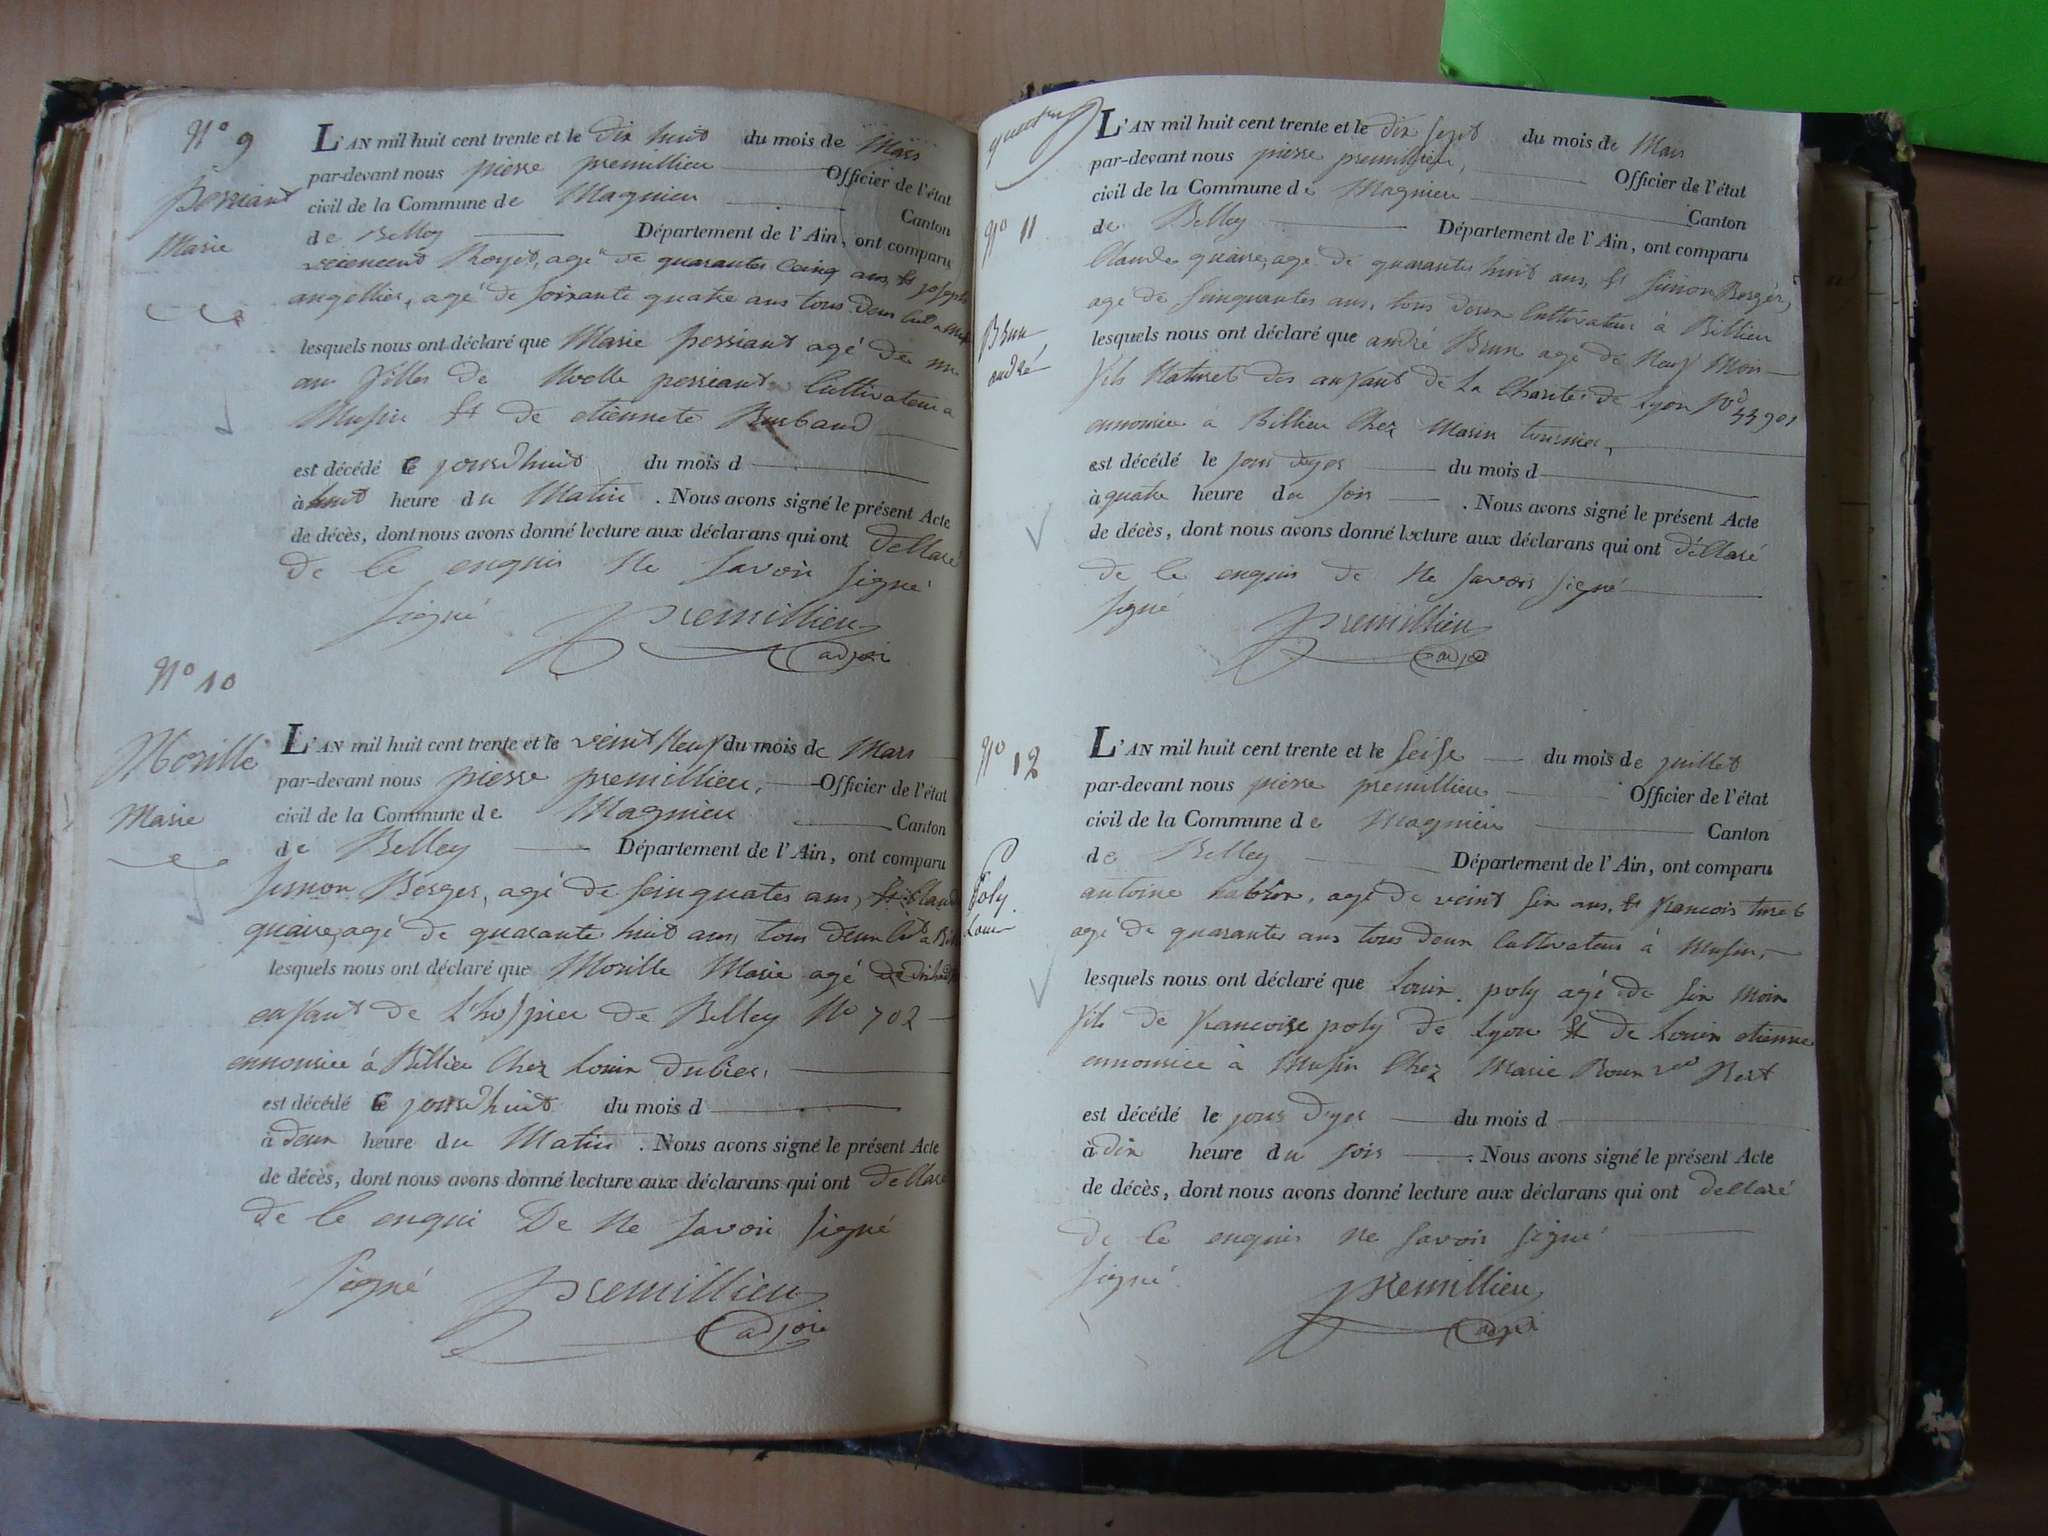 N° 9
Perriant
Marie
L'AN mil huit cent trente et le dix huit du mois de Mars
par-devant nous pierre premillieu Officier de l'état
civil de la Commune de Magnieu Canton
de Belley Département de l'Ain, ont comparu
agé de quarantes Cainq ans, et joseph
angellier, agé de soixante quatre ans tous deux
lesquels nous ont déclaré que Marie perriant agé de un
an filles de perriant Cultivateur a
Musin et de etiennete
est décédé ce jourd'huit du mois d
à huit heure du Matin . Nous avons signé le présent Acte
de décès, dont nous avons donné lecture aux déclarans qui ont dellaré
de le enquis Ne savoir signé
signé premillieu
adjoi
N° 10
Morille
Marie
L'AN mil huit cent trente et le veint Neuf du mois de Mars
par-devant nous pierre premillieu, Officier de l'état
civil de la Commune de Magnieu Canton
de Belley Département de l'Ain, ont comparu
simon Berger, agé de seinquates ans, et Claude
quaire, agé de quarante huit ans, tous deux
lesquels nous ont déclaré que Morille Marie agé
enfant de L'hospice de Belley N° 702
ennourice á Billieu Chez Louin dubier.
est décédé ce jourd'huit du mois d
à deux heure du Matin . Nous avons signé le présent Acte
de décès, dont nous avons donné lecture aux déclarans qui ont dellaré
de le enqui De Ne savoir signé
signé premillieu
adjoi
N° 11
Brun
andré
L'AN mil huit cent trente et le dix sept du mois de Mars
par-devant nous pierre premillieu, Officier de l'état
civil de la Commune de Magnieu Canton
de Belley Département de l'Ain, ont comparu
Claude quaire, agé de quarantes huit ans, et simon Berger,
agé de seinquantes ans, tous deux Cultivateur à Billieu
lesquels nous ont déclaré que andré Brun agé de Neuf Mois
fils Naturel des anfant de La Charité de Lyon
ennourice a Billieu Chez Marin tournier,
est décédé le jour d'yer du mois d
à quatre heure du soir . Nous avons signé le présent Acte
de décès, dont nous avons donné lecture aux déclarans qui ont déllaré
de le enquis de Ne savoir signé
signé premillieu
adjoi
N° 12
Poly
Louin
L'AN mil huit cent trente et le seise du mois de juillet
par-devant nous pierre premillieu Officier de l'état
civil de la Commune de Magnieu Canton
de Belley Département de l'Ain, ont comparu
antoine agé de veint six ans, et francois
agé de quarantes ans tous deux Cultivateur à Musin,
lesquels nous ont déclaré que Louin poly agé de six Mois
fils de francoise poly de Lyon et de Louin etienne
ennourice à Musin Chez Marie Roux
est décédé le jour d'yer du mois d
à dix heure du soir . Nous avons signé le présent Acte
de décès, dont nous avons donné lecture aux déclarans qui ont dellaré
de le enquis ne savoir signé
signé premillieu
adjoi